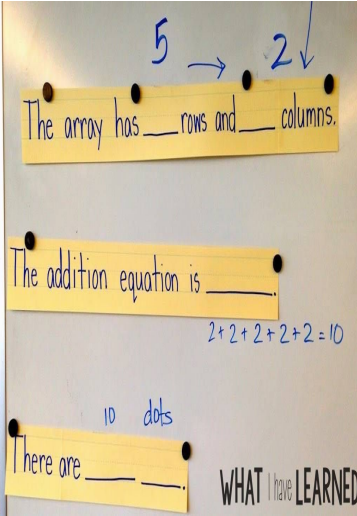 5 → 2 ↓
The array has ___ rows and ___ columns.
The addition equation is ______.
2+2+2+2+2=10
10 dots
There are ____ ___.
WHAT I have LEARNED